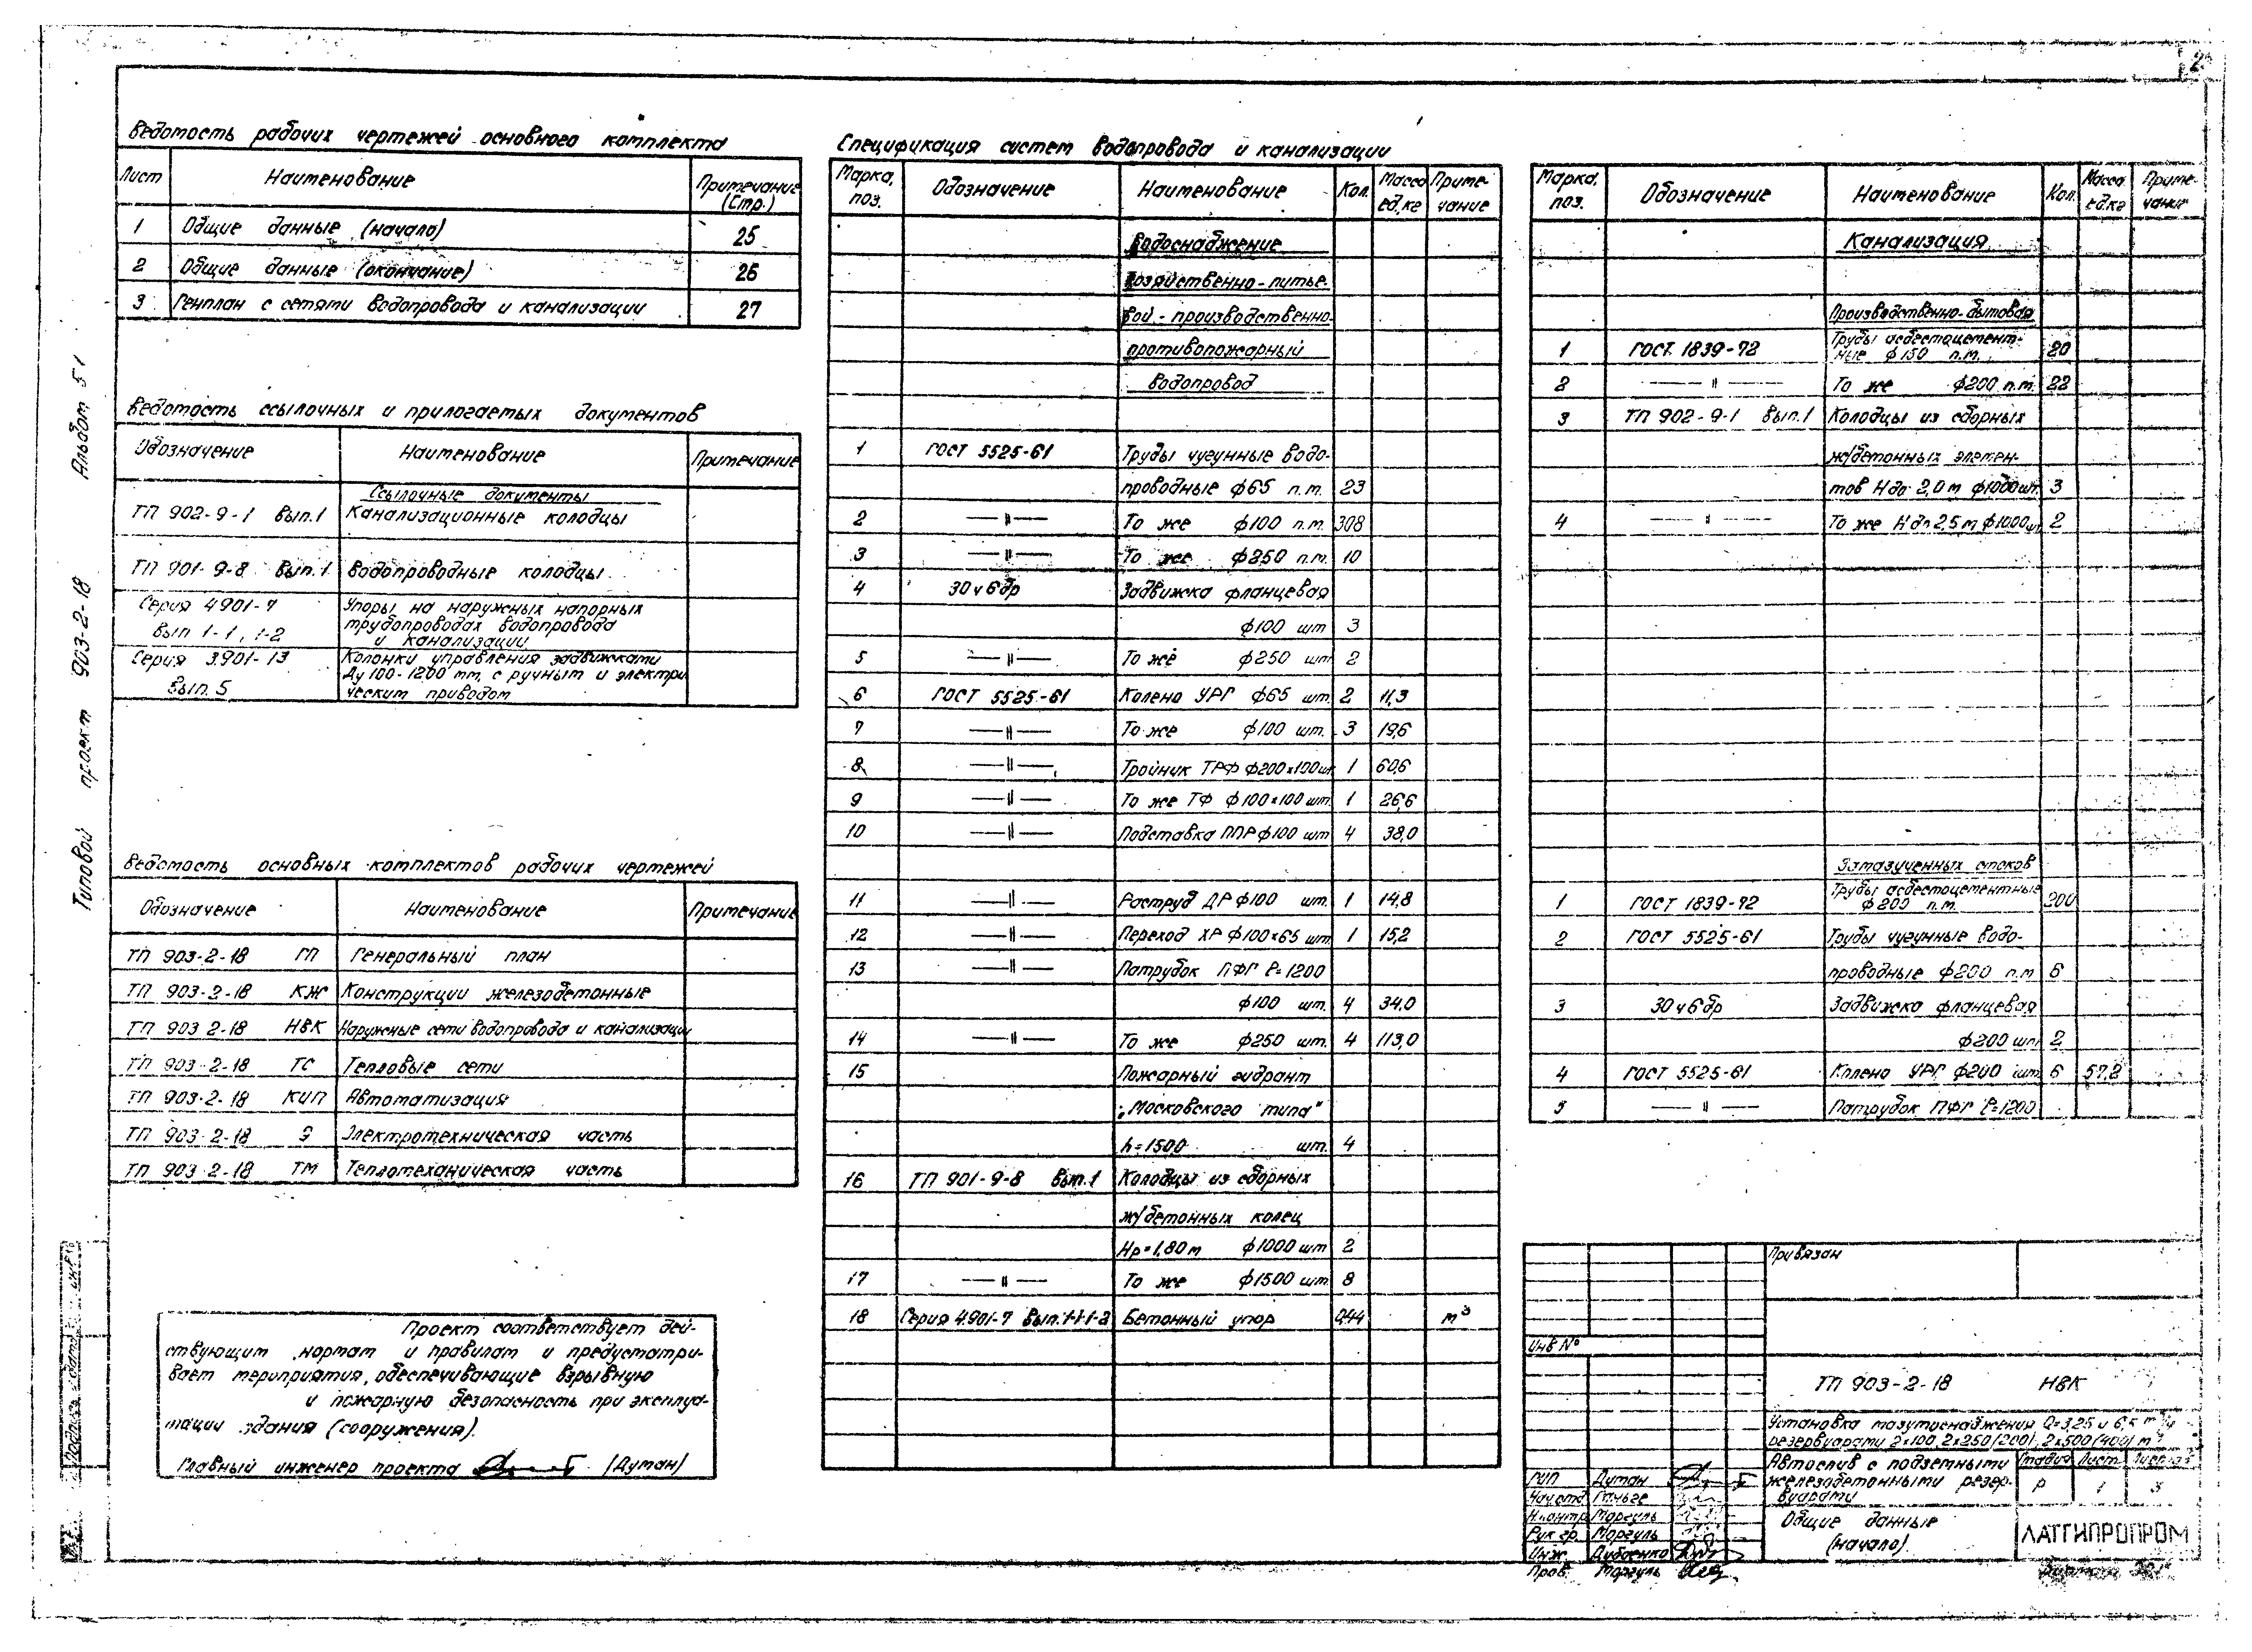 2
Альбом 5.1
Типовой проект 903-2-18
Ведомость рабочих чертежей основного комплекта
Лист Наименование Примечание (Стр.)
1 Общие данные (начало) 25
2 Общие данные (окончание) 26
3 Генплан с сетями водопровода и канализации 27
Ведомость ссылочных и прилагаемых документов
Обозначение Наименование Примечание
Ссылочные документы
ТП 902-9-1 Вып.1 Канализационные колодцы
ТП 901-9-8 Вып.1 Водопроводные колодцы
Серия 4.901-7 Упоры на наружных напорных
Вып 1-1, 1-2 трубопроводах водопровода
и канализации
Серия 3.901-13 Колонки управления задвижками
Ду 100-1200 мм, с ручным и электри
Вып. 5 ческим приводом
Ведомость основных комплектов рабочих чертежей
Обозначение Наименование Примечание
ТП 903-2-18 ГП Генеральный план
ТП 903-2-18 КЖ Конструкции железобетонные
ТП 903 2-18 НВК Наружные сети водопровода и канализации
ТП 903-2-18 ТС Тепловые сети
ТП 903-2-18 КИП Автоматизация
ТП 903-2-18 Э Электротехническая часть
ТП 903-2-18 ТМ Тепломеханическая часть
Проект соответствует дей-
ствующим нормам и правилам и предусматри-
вает мероприятия, обеспечивающие взрывную
и пожарную безопасность при эксплуа-
тации здания (сооружения).
Главный инженер проекта (Думан)
Спецификация систем водопровода и канализации
Марка, поз. Обозначение Наименование Кол. Масса ед, кг Приме-чание
Водоснабжение
Хозяйственно-питье
вой-производственно-
противопожарный
водопровод
1 ГОСТ 5525-61 Трубы чугунные водо-
проводные ф65 п.м. 23
2 —"— То же ф100 п.м. 308
3 —"— То же ф250 п.м. 10
4 30ч6бр Задвижка фланцевая
ф100 шт 3
5 —"— То же ф250 шт 2
6 ГОСТ 5525-61 Колено УРГ ф65 шт. 2 11,3
7 —"— То же ф100 шт. 3 19,6
8 —"— Тройник ТРФ ф200×100 шт 1 60,6
9 —"— То же ТФ ф100×100 шт. 1 26,6
10 —"— Подставка ППР ф100 шт 4 38,0
11 —"— Раструб ДР ф100 шт. 1 14,8
12 —"— Переход ХР ф100×65 шт 1 15,2
13 —"— Патрубок ПФГ ℓ=1200
ф100 шт. 4 34,0
14 —"— То же ф250 шт. 4 113,0
15 Пожарный гидрант
„Московского типа"
h=1500 шт. 4
16 ТП 901-9-8 Вып.1 Колодцы из сборных
ж/бетонных колец
Нр=1,80 м ф1000 шт 2
17 —"— То же ф1500 шт. 8
18 Серия 4.901-7 Вып. 1-1-1-2 Бетонный упор 0,44 м³
Марка, поз. Обозначение Наименование Кол. Масса ед.кг Приме-чание
Канализация
Производственно-бытовая
1 ГОСТ 1839-72 Трубы асбестоцемент-
ные ф150 п.м. 20
2 —"— То же ф200 п.м. 22
3 ТП 902-9-1 Вып.1 Колодцы из сборных
ж/бетонных элемен-
тов Н до 2,0 м ф1000 шт. 3
4 —"— То же Н до 2,5 м ф1000 шт 2
Замазученных стоков
1 ГОСТ 1839-72 Трубы асбестоцементные
ф200 п.м. 200
2 ГОСТ 5525-61 Трубы чугунные водо-
проводные ф200 п.м 6
3 30ч6бр Задвижка фланцевая
ф200 шт 2
4 ГОСТ 5525-61 Колено УРГ ф200 шт. 6 57,2
5 —"— Патрубок ПФГ ℓ=1200
Привязан
Инв №
ТП 903-2-18 НВК
Установка мазутоснабжения Q=3,25 и 6,5 м³/ч
резервуарами 2×100, 2×250(200), 2×500(400) м³
Автослив с подземными
железобетонными резер-
вуарами
Стадия Лист Листов
Р 1 3
Общие данные
(начало)
ЛАТГИПРОПРОМ
ГИП Думан
Нач.отд.
Н.контр Маргуль
Рук гр. Маргуль
Инж.
Пров. Маргуль
Формат